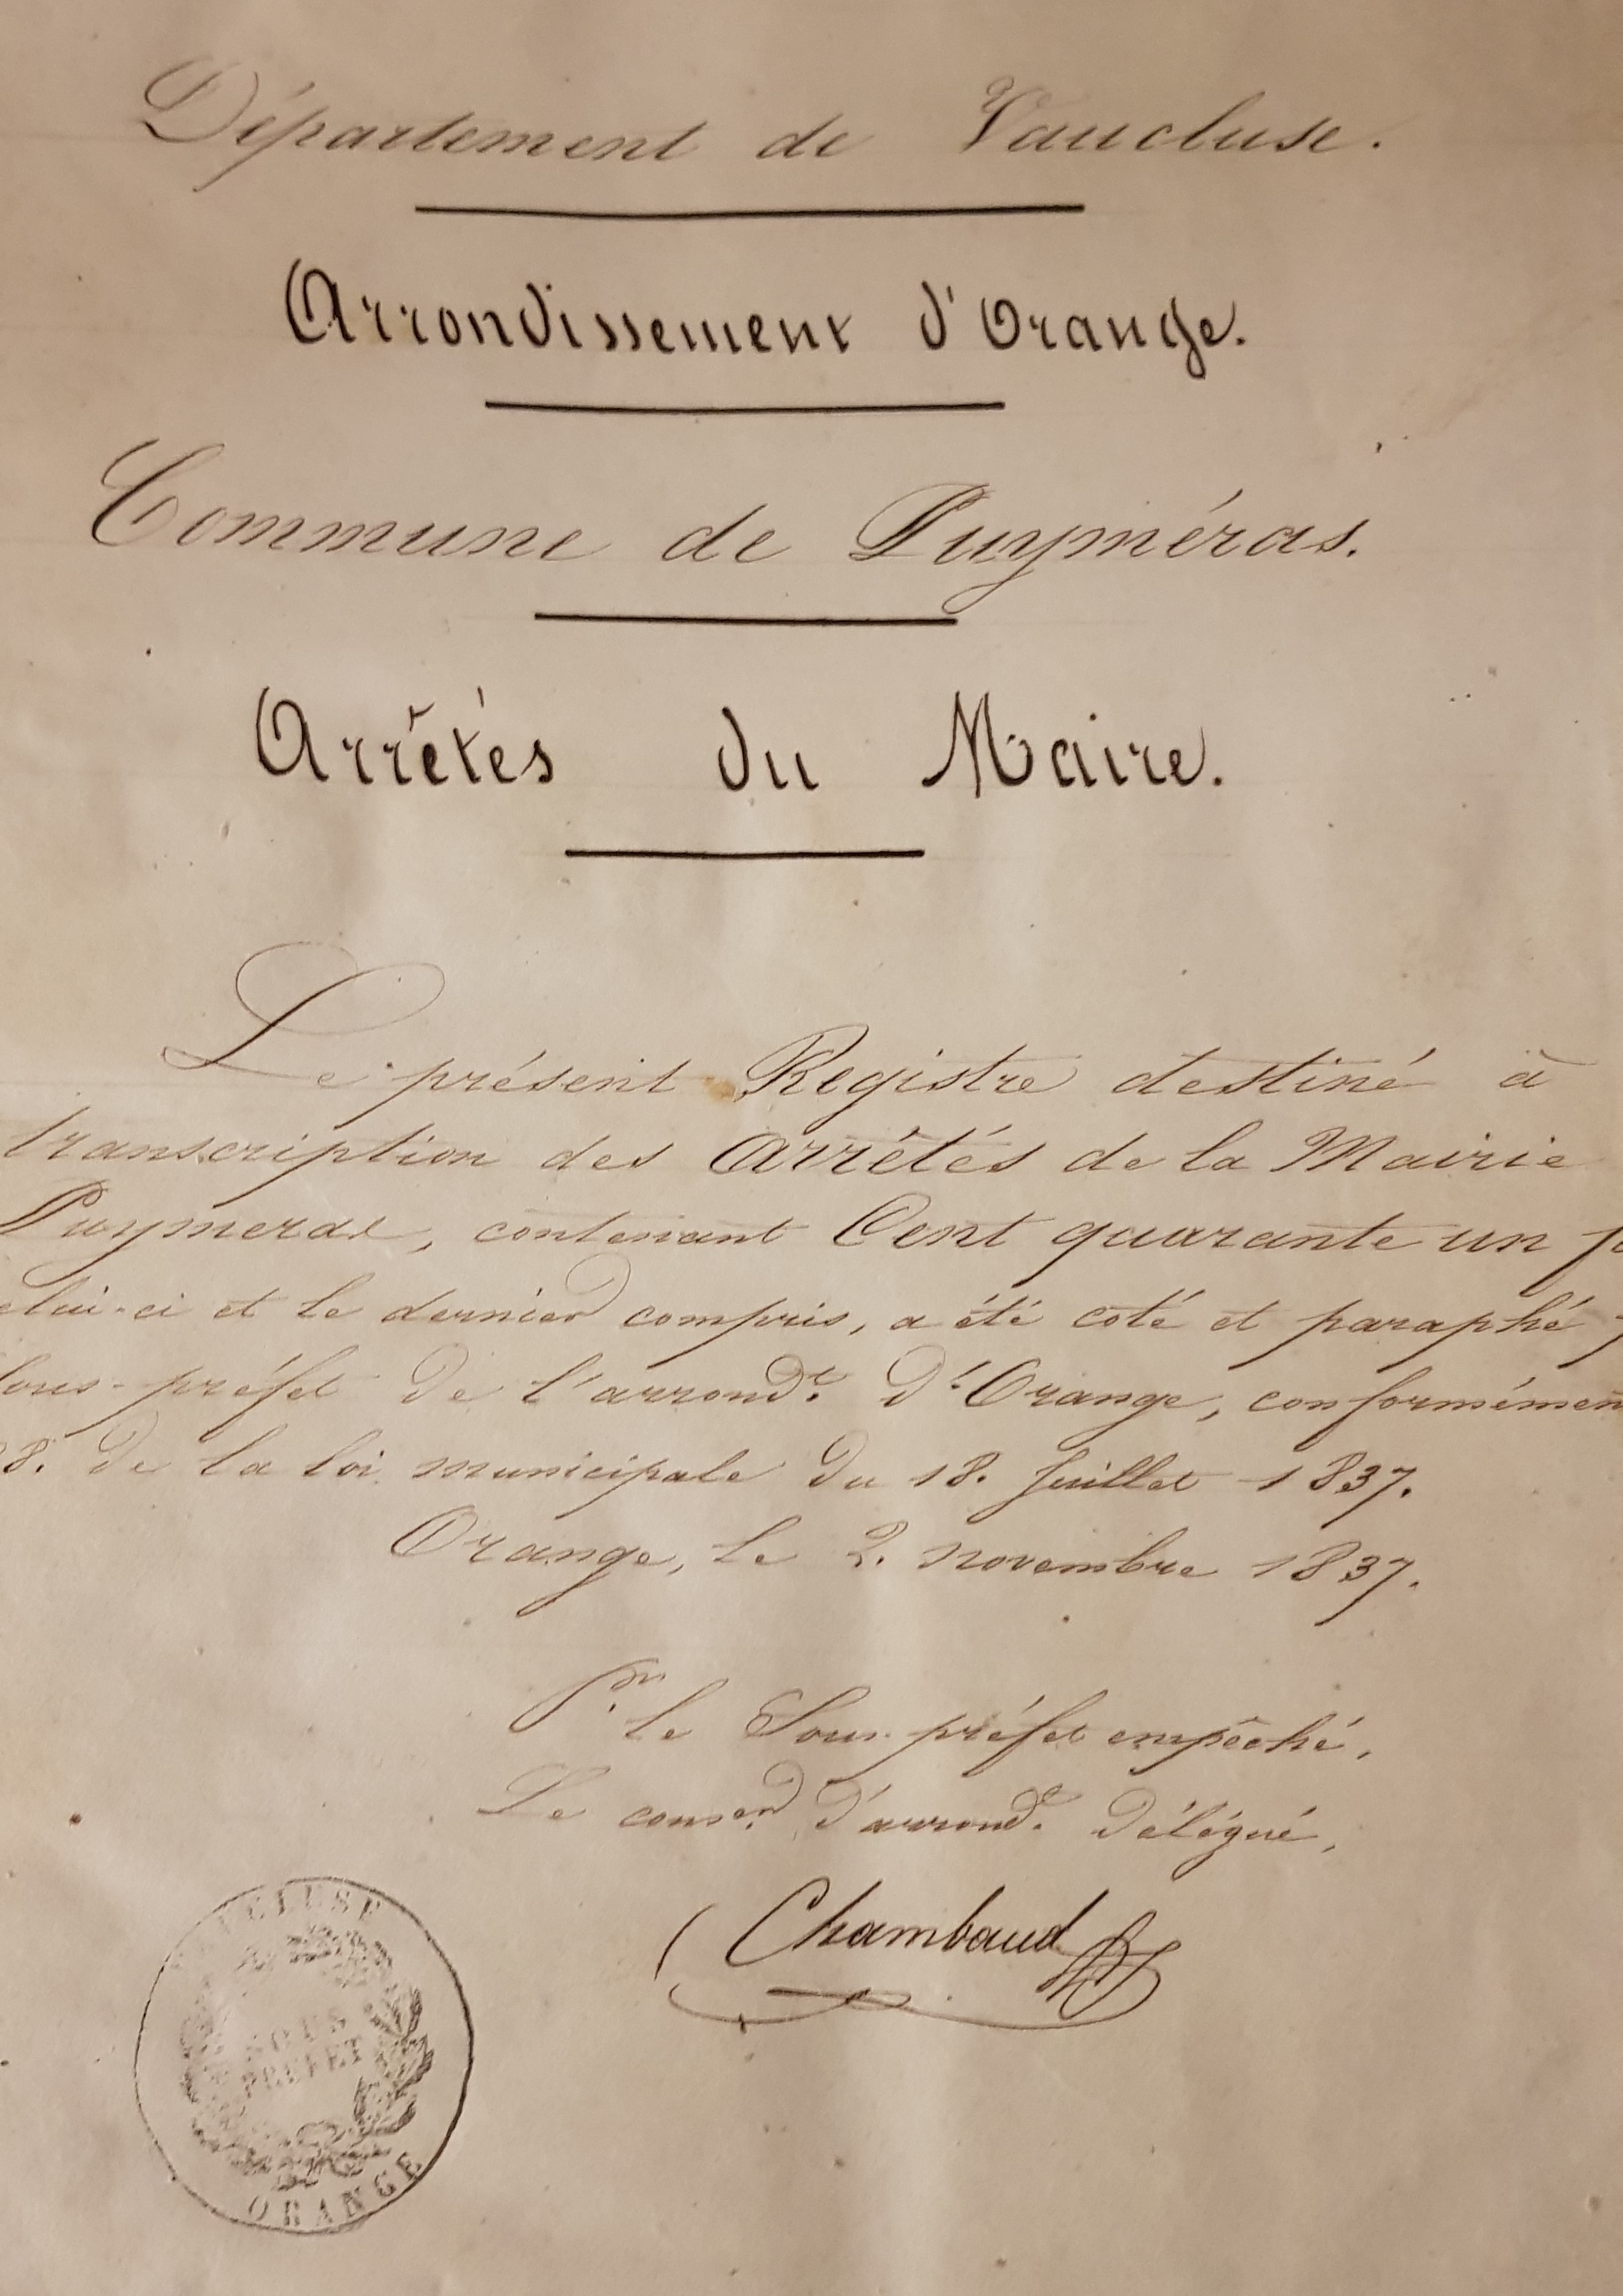 Département de Vaucluse.
Arrondissement d'Orange.
Commune de Puyméras.
Arrêtés du Maire.
Le présent Registre destiné à
transcription des Arrêtés de la Mairie
Puymeras, contenant Cent quarante un
elui-ci et le dernier compris, a été coté et paraphé
Sous-préfet de l'arrond.t d'Orange, conformémen
8. de la loi municipale du 18. Juillet 1837.
Orange, le 2. novembre 1837.
P.r le Sous-préfet empêché,
Le cons.er d'arrond.t délégué,
Chambaud
VAUCLUSE
SOUS
PREFET
ORANGE